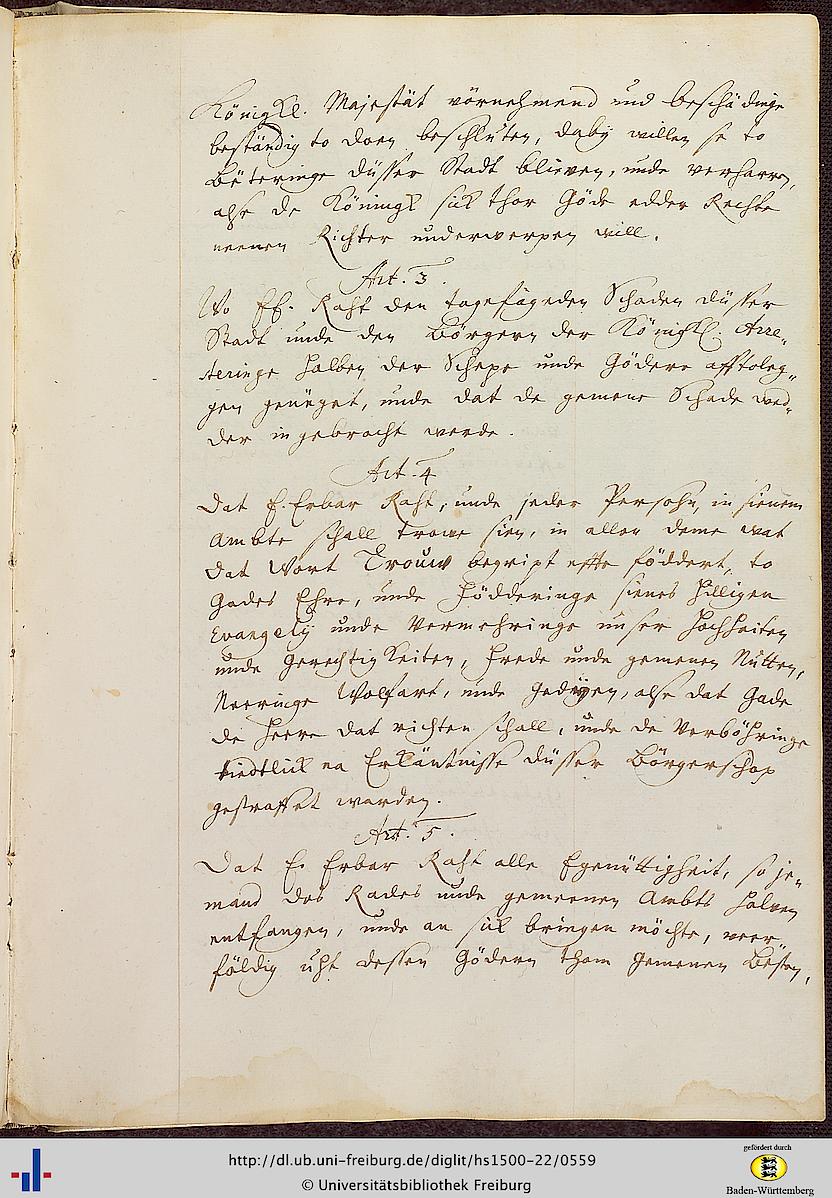 Königkl. Majestät vörnehmend und beschädinge
beständig to doen beschluten, daby willen se to
Béteringe düsser Stadt blieven, unde verharren,
alse de Köningk sick thor Göde edder Rechte
neenen Richter underwerpen will.
Art. 3.
Wo EE. Raht den togefögeden Schaden düsser
Stadt unde den Börgern der Königkl. Arre-
steringe halben der Schepe unde Gödere afftholeg-
gen geneget, unde dat de gemene Schade wed-
der ingebracht werde.
Art. 4
Dat E. Erbar Raht, unde jeder Persohn, in sienem
Ambte schall trowe sien, in allen deme wat
dat Wort Trouw begript effte föddert, to
Gades Ehre, unde Födderinge sienes hilligen
Evangelij unde Vermehringe unser Hochheiten
unde Gerechtigkeiten, Frede unde gemenen Nütten,
Neeringe Wolfart, unde Gedÿen, alse dat Gade
de Heere dat richten schall, unde de Verböhringe
na Erkäntnisse düsser Börgerschop
gestraffet warden.
Art. 5.
Dat E. Erbar Raht alle Egenüttigheit, so je-
mand des Rades unde gemeenen Ambts halven
entfangen, unde an sick bringen möchte, veer-
földig uht dessen Gödern thom gemenen Besten,
http://dl.ub.uni-freiburg.de/diglit/hs1500-22/0559
© Universitätsbibliothek Freiburg
gefördert durch
Baden-Württemberg